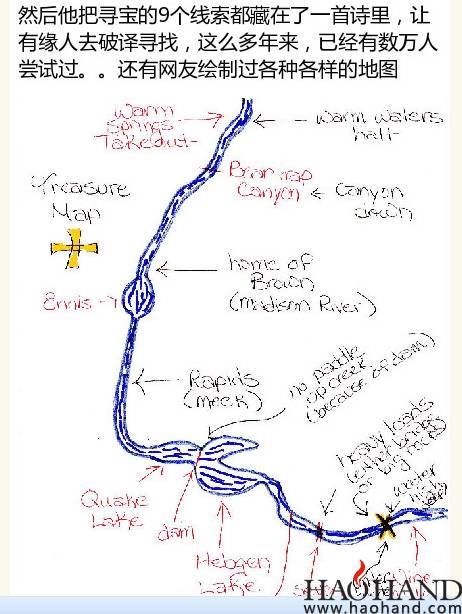 然后他把寻宝的9个线索都藏在了一首诗里，让
有缘人去破译寻找，这么多年来，已经有数万人
尝试过。。还有网友绘制过各种各样的地图
Warm
Springs
Takeout
Warm waters
halt
Bear trap
Canyon
Canyon
down
Treasure
Map
home of
Brown
(Madison River)
Ennis
Rapids
(meek)
no paddle
up creek
(because of dam)
heavy loads
(either bridge
or big rocks)
water
high
Quake
Lake
dam
Hebgen
Lake
HAOHAND
www.haohand.com